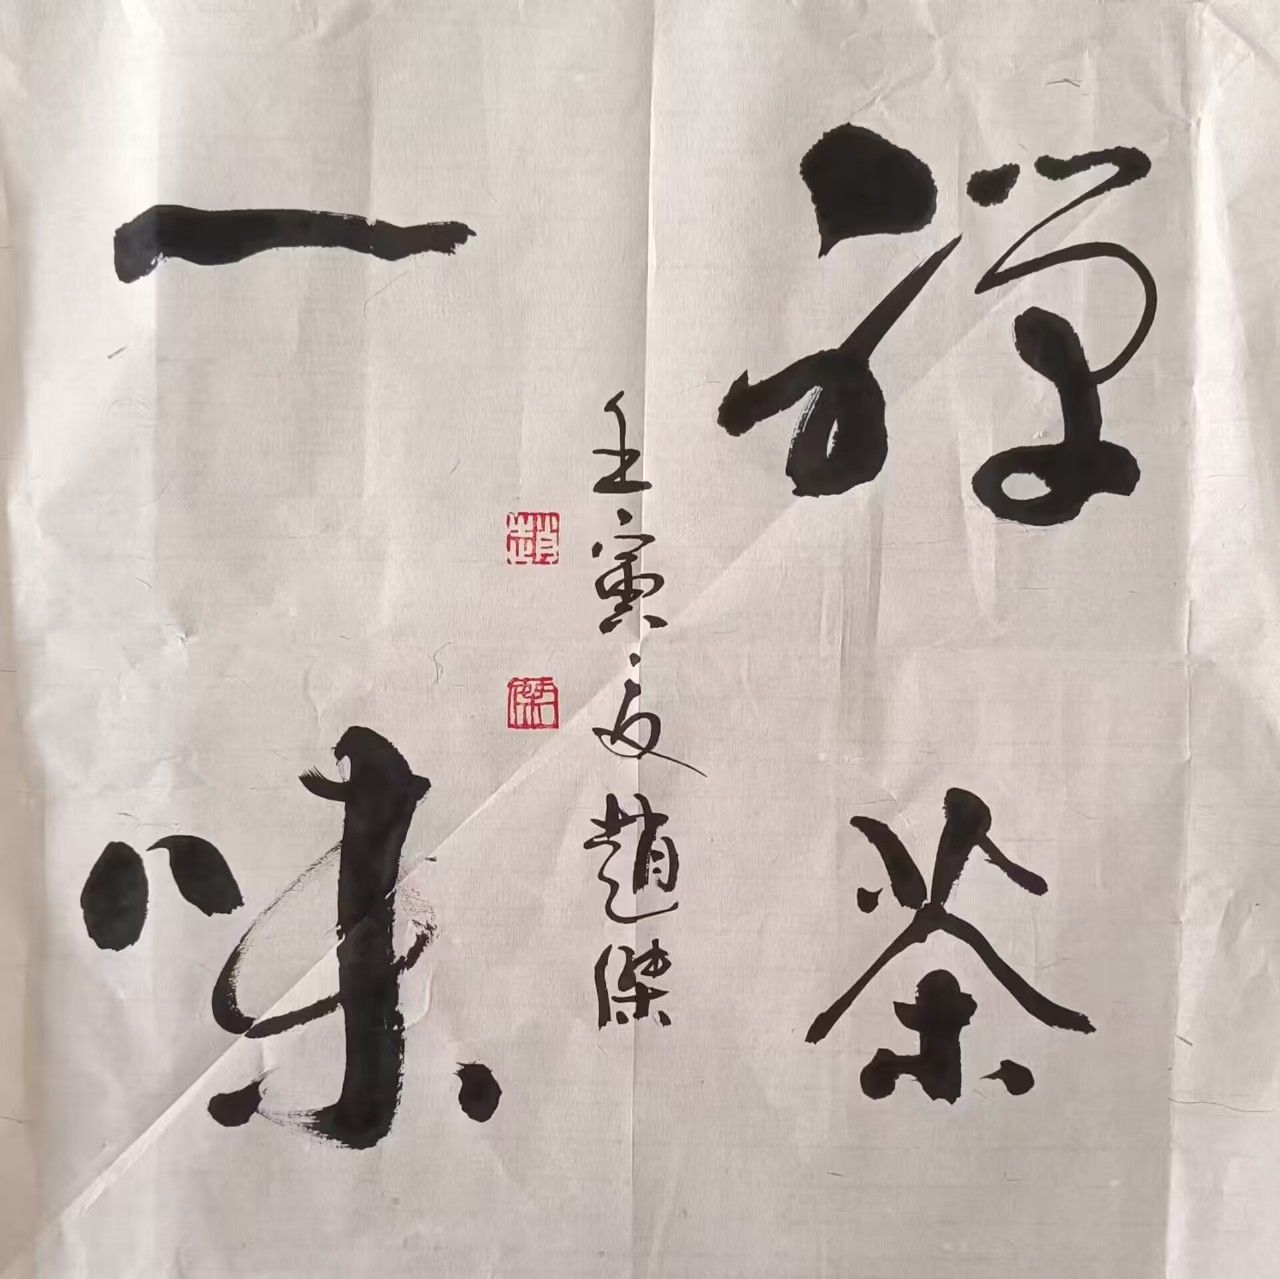 禪茶
一味
壬寅夏趙傑
趙
傑